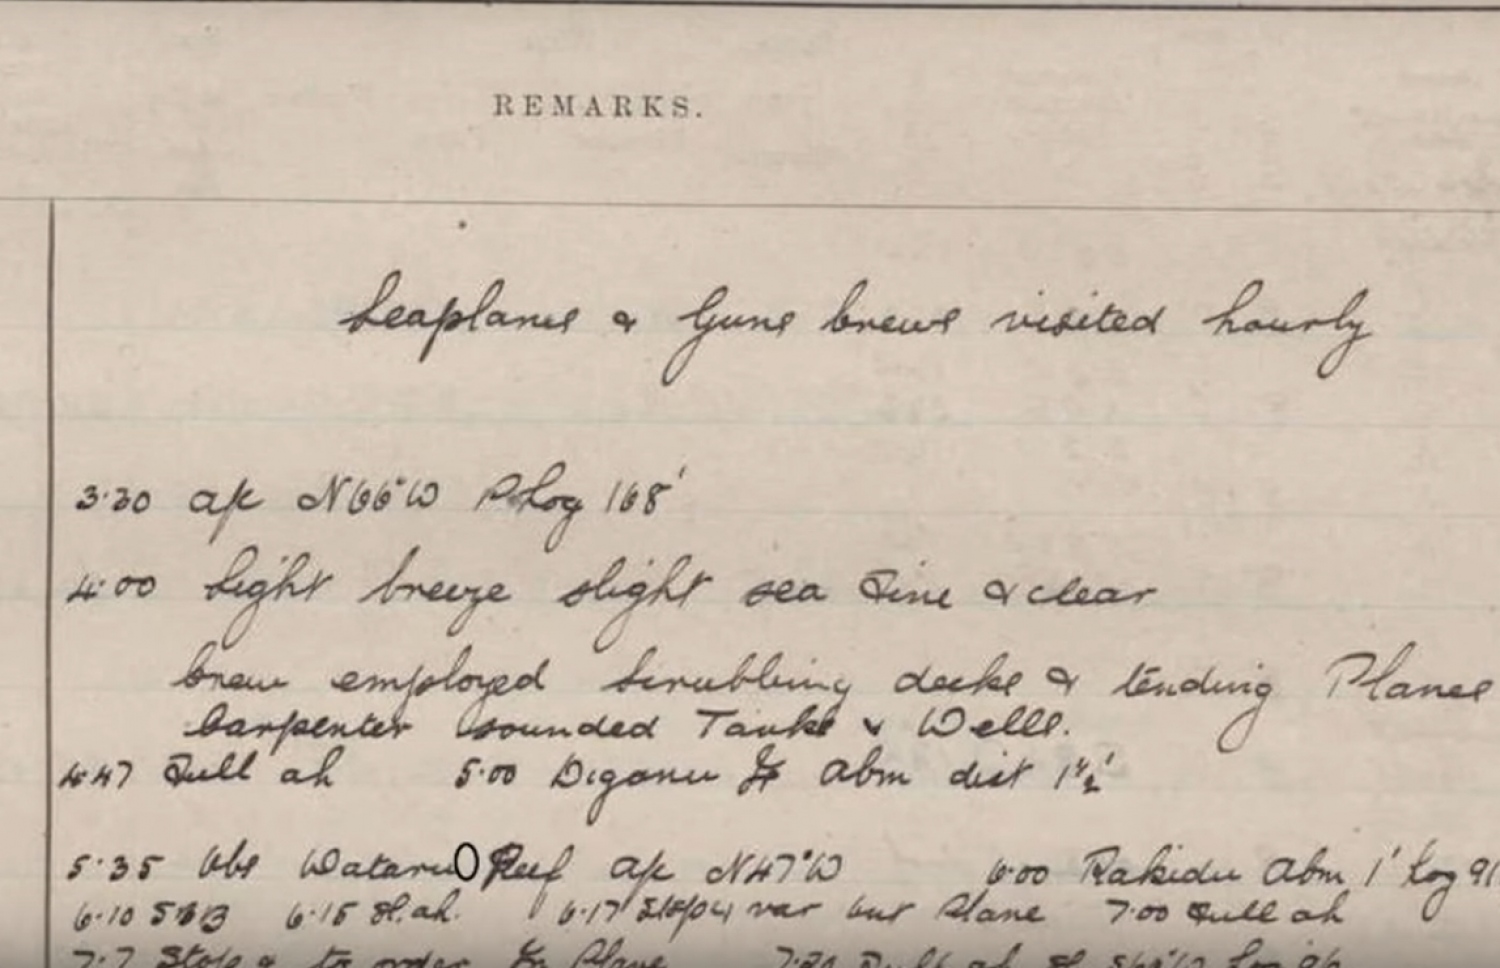 REMARKS.
Seaplanes & Guns Crews visited hourly
3.30 a/c N66°W P. Log 168'
4.00 Light breeze slight sea Fine & clear
Crew employed Scrubbing decks & tending Planes
Carpenter sounded Tanks & Wells.
4.47 Full ah 5.00 Diganu Is Abm dist 1½'
5.35 Obs Wataru Reef a/c N47°W 6.00 Rakidu Abm 1' Log 91
6.10 6.15 Sl. ah. 6.17 Stop var out Plane 7.00 Full ah
7.7 Stop & to order for Plane 7.20 Full ah